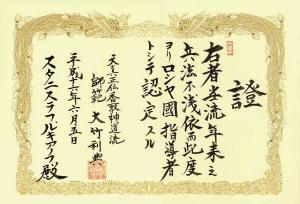 證
右者 流年来之
兵法不浅依而此度
ヨリロシヤ國指導者
トシテ認定スル
天真正伝香取神道流
師範 大竹利典
平成十六年六月五日
スタニスラブ 殿